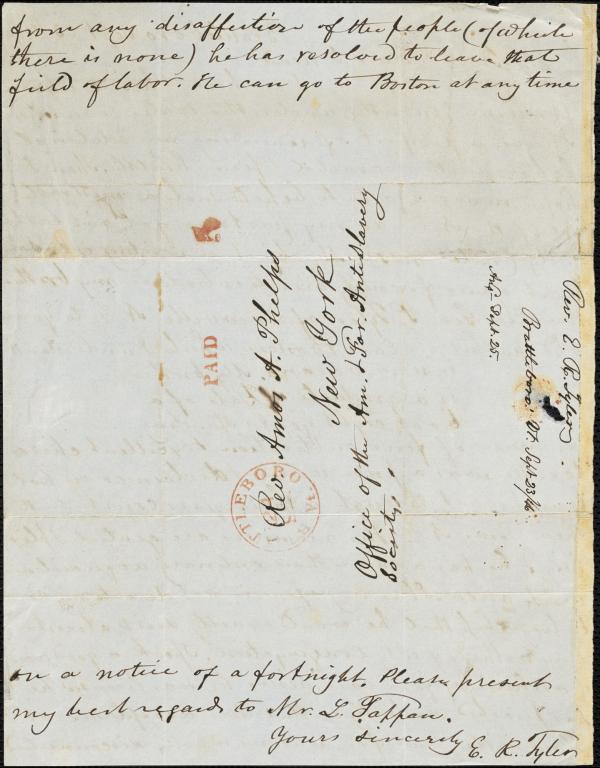 from any disaffection of the people (of which
there is none) he has resolved to leave that
field of labor. He can go to Boston at any time
PAID
BRATTLEBORO
Rev Amos A Phelps
New York
Office of the Am. & For. Antislavery
Society.
Rev. E. R. Tyler
Brattleboro, Vt. Sept. 23/46
Sept. 25
on a notice of a fortnight. Please present
my best regards to Mr. L. Tappan.
Yours sincerely E. R. Tyler